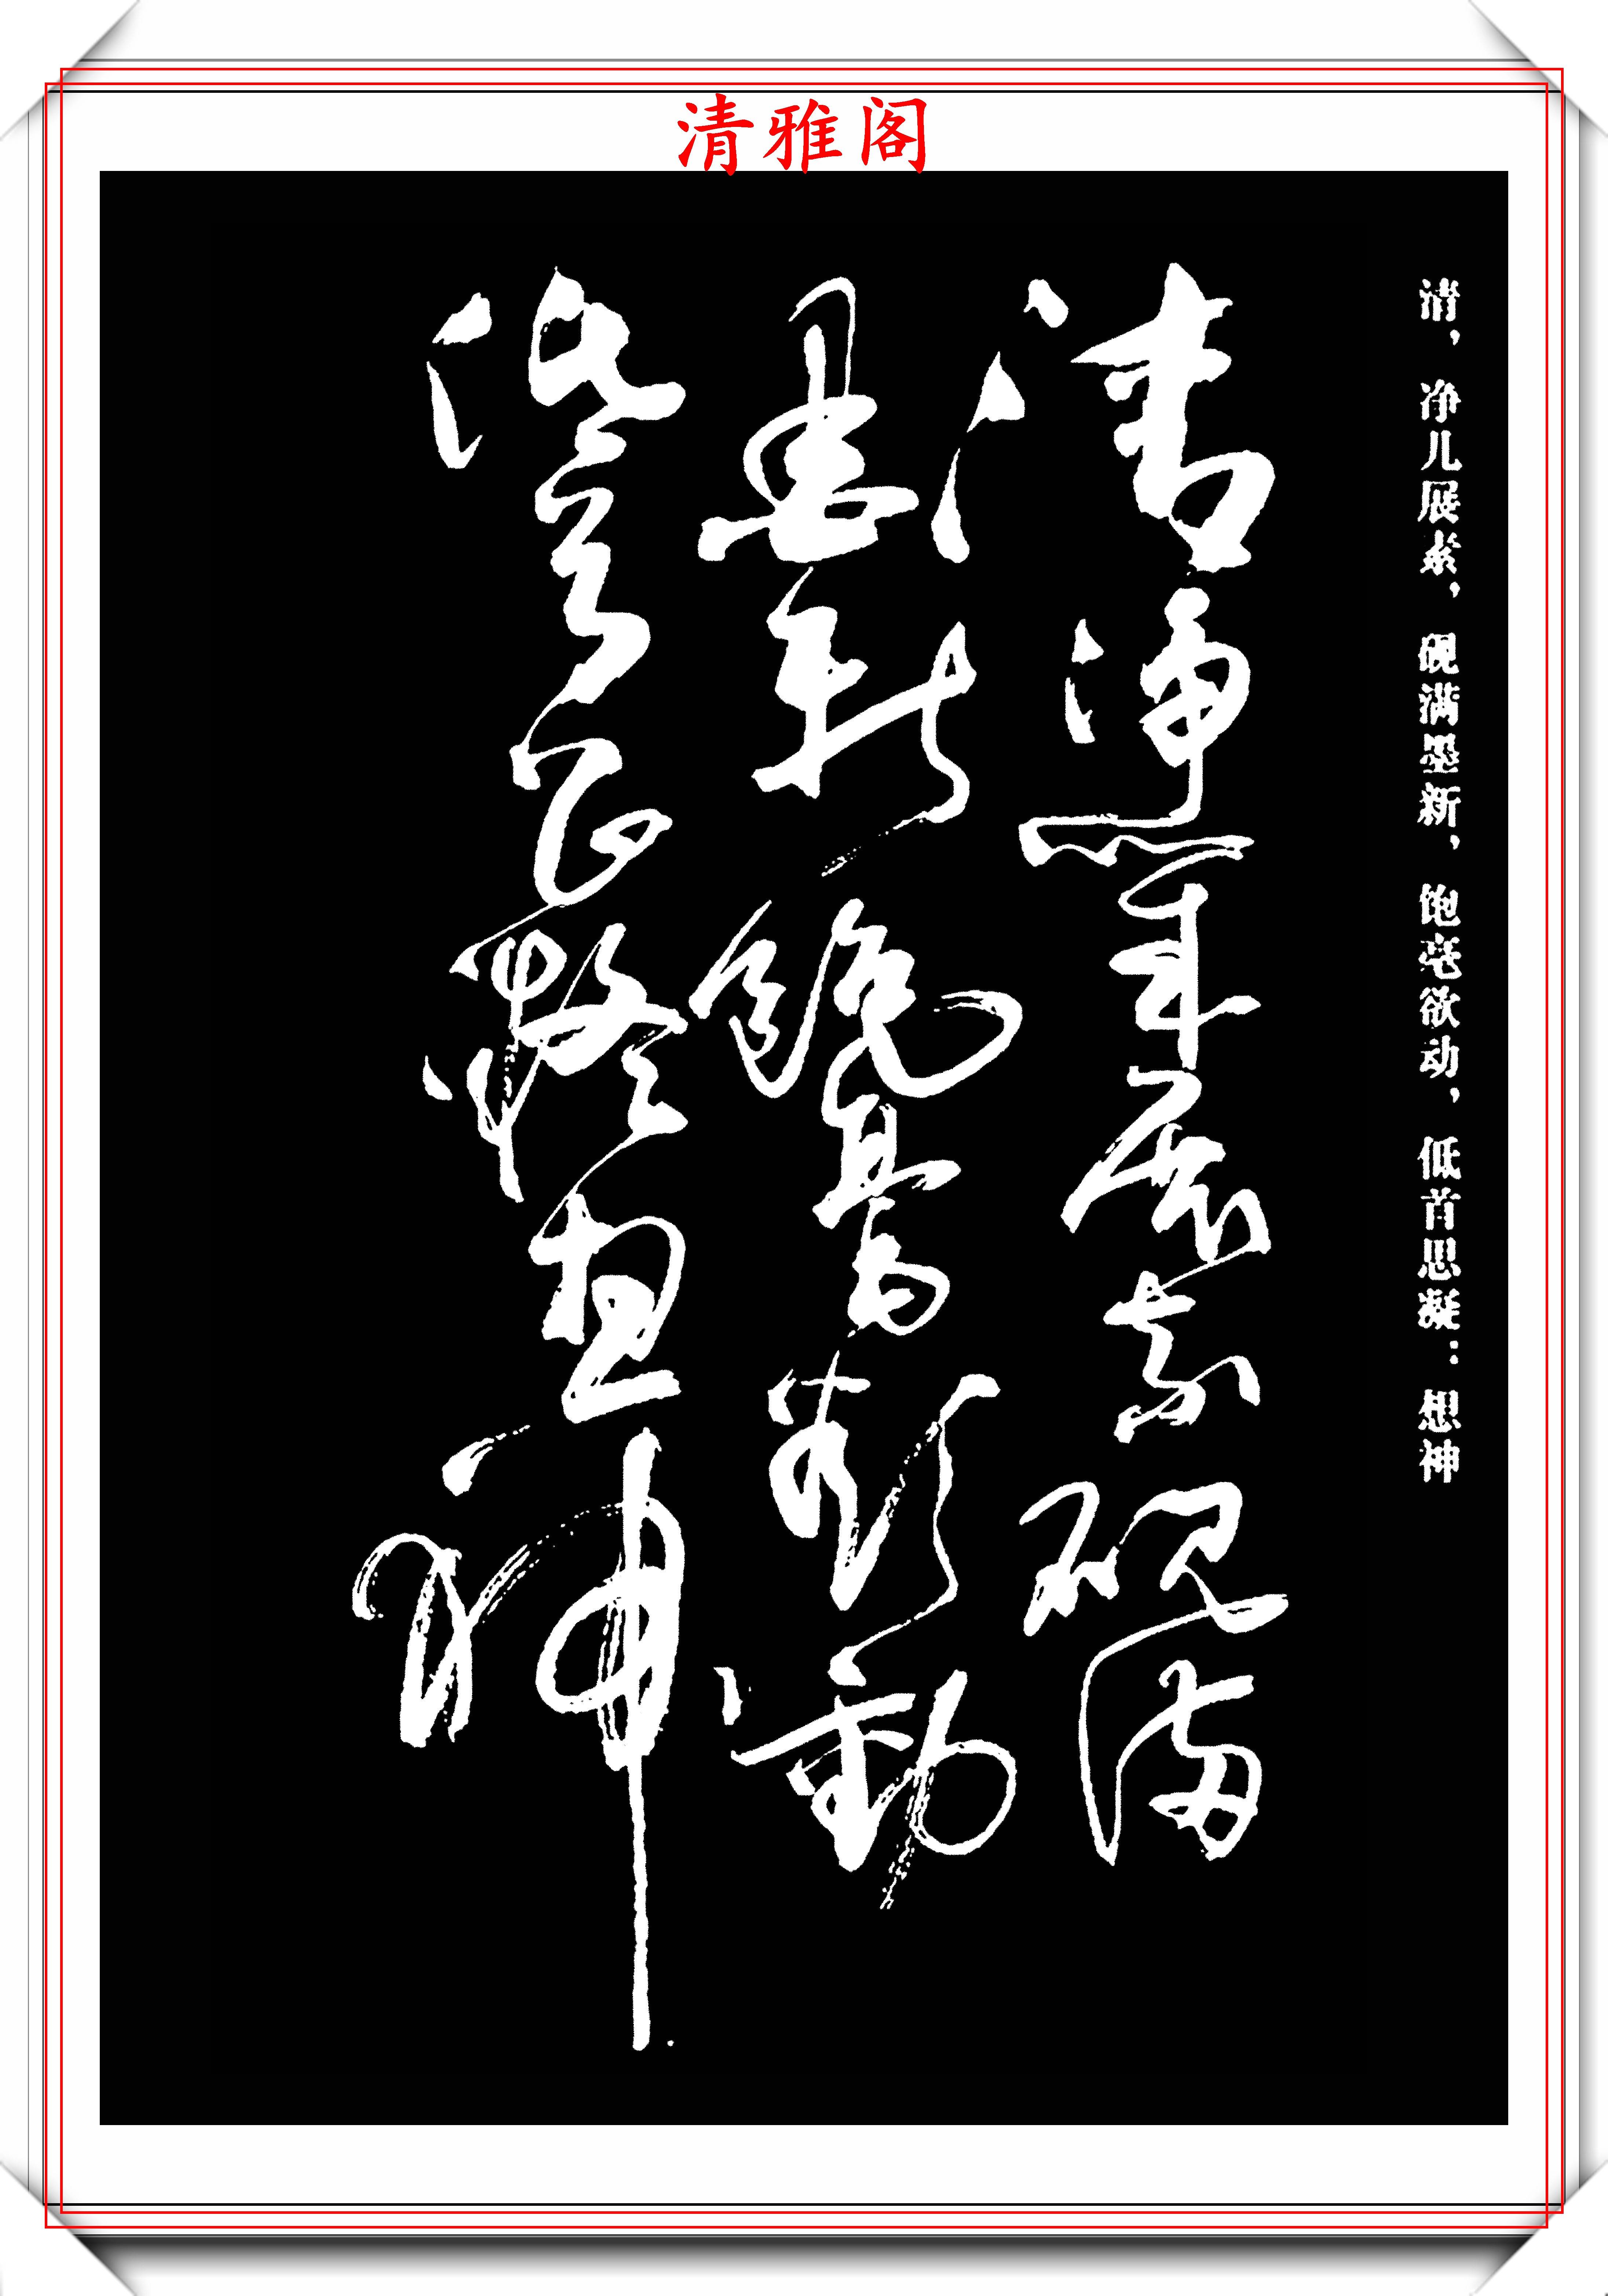 清雅阁
清，净儿展素，砚满墨新，饱毫欲动，低首思凝：想神
清净展素砚满
墨新饱毫欲動
想神